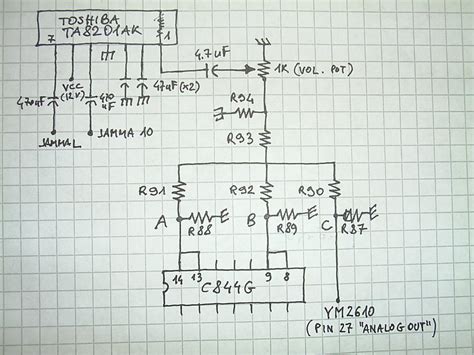 TOSHIBA
TA8201AK
7
1
4.7uF
1K (VOL. POT)
VCC
(12V)
470uF
470
uF
47uF (x2)
R94
JAMMA L
JAMMA 10
R93
R91
R92
R90
A
R88
B
R89
C
R87
14
13
C844G
9
8
YM2610
(PIN 27 "ANALOG OUT")